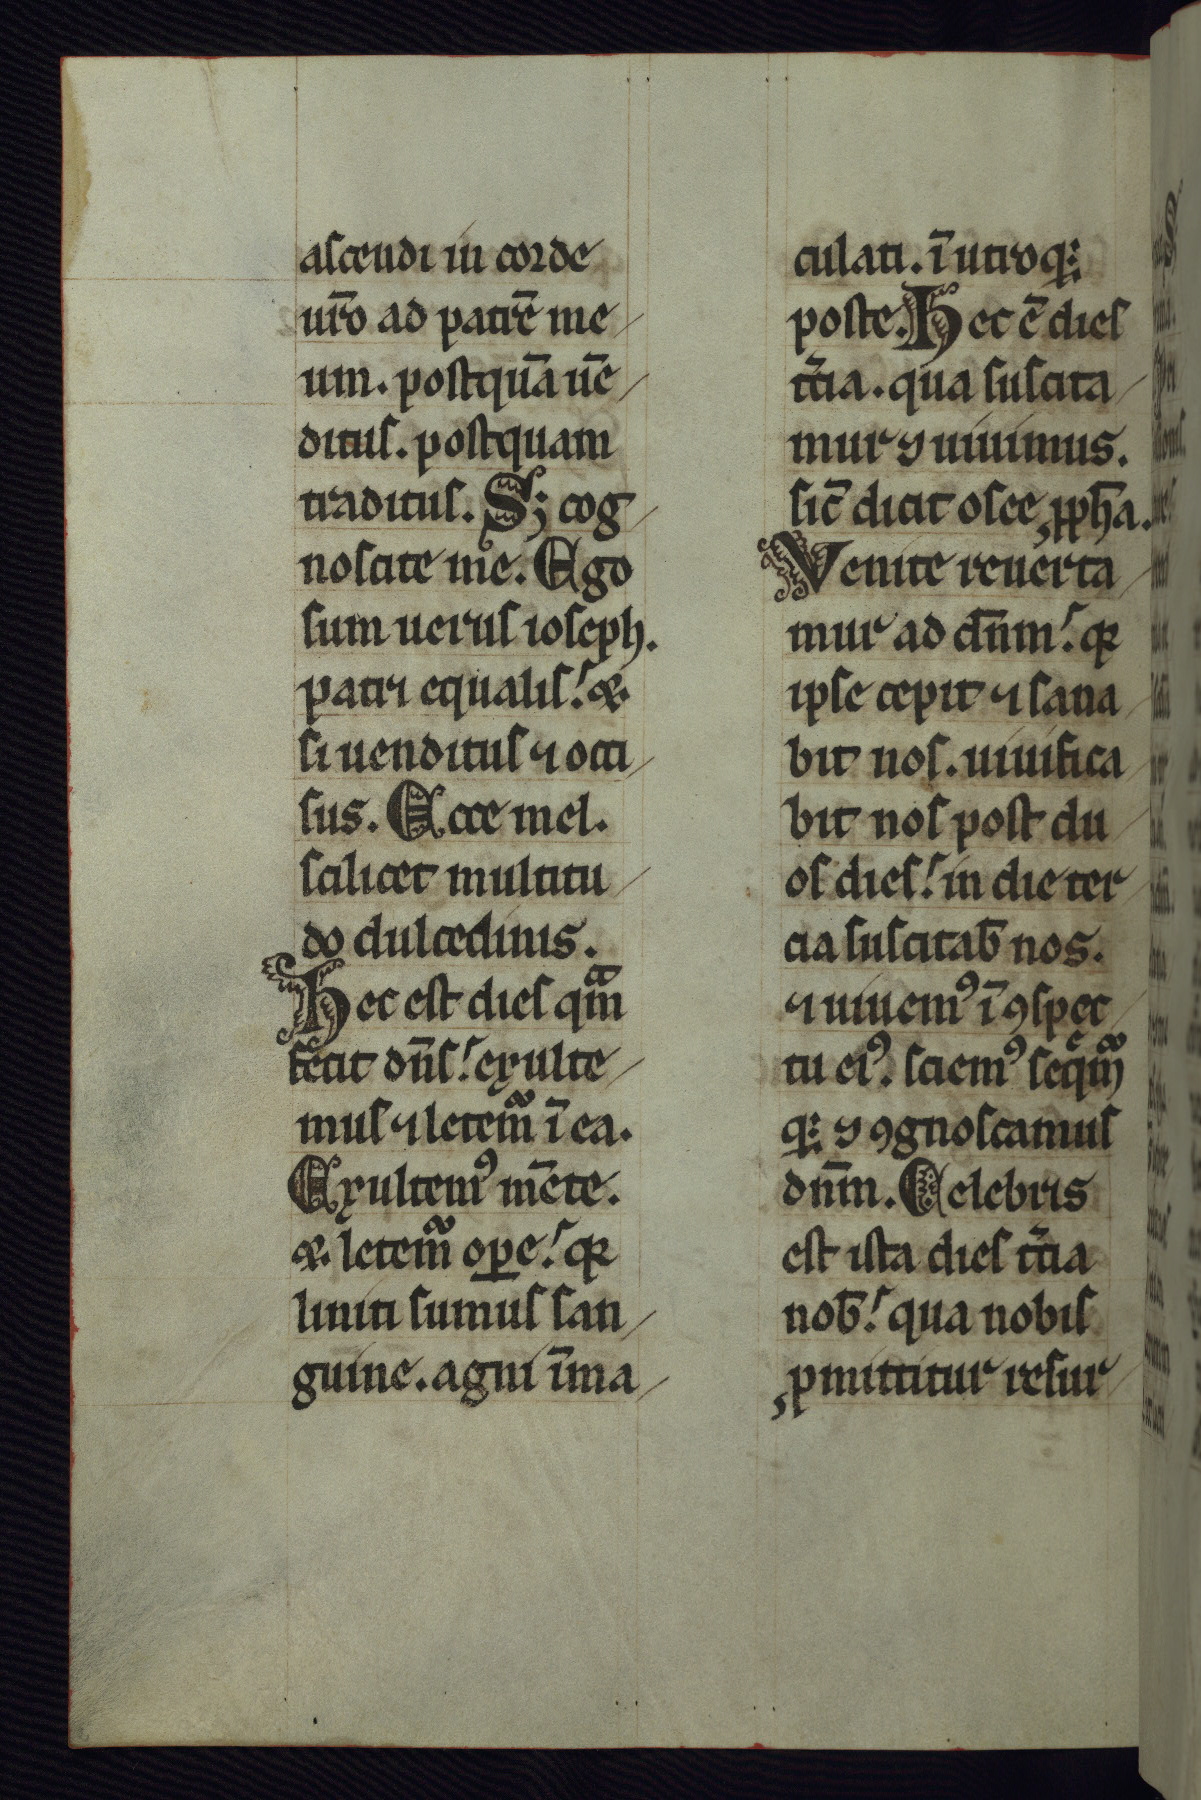 ascendi in corde
ur̄o ad patrē me
um. postquā uē
ditus. postquam
traditus. Sꝫ cog
noscite me. Ego
sum uerus ioseph.
patri equalis. &
si uenditus ⁊ occi
sus. Ecce mel.
scilicet multitu
do dulcedinis.
Hec est dies qͣm
fecit dn̄s. exulte
mus ⁊ letemͮ ī ea.
Exultemꝰ mēte.
& letemͮ ope. qꝛ
liniti sumus san
guine. agni īma
culati. ī utroqꝫ
poste. Hec ē dies
tc̄ia. qua suscita
mur ⁊ uiuimus.
sic̄ dicit osee ꝓph̄a.
Venite reuerta
mur ad dn̄m. qꝛ
ipse cepit ⁊ sana
bit nos. uiuifica
bit nos post du
os dies. in die ter
cia suscitab̄ nos.
⁊ uiuemꝰ ī ꝯspec
tu eiꝰ. sciemꝰ seqͤmͮ
qꝫ ⁊ ꝯgnoscamus
dn̄m. Celebris
est ista dies tc̄ia
nob̄. qua nobis
ꝓmittitur resur